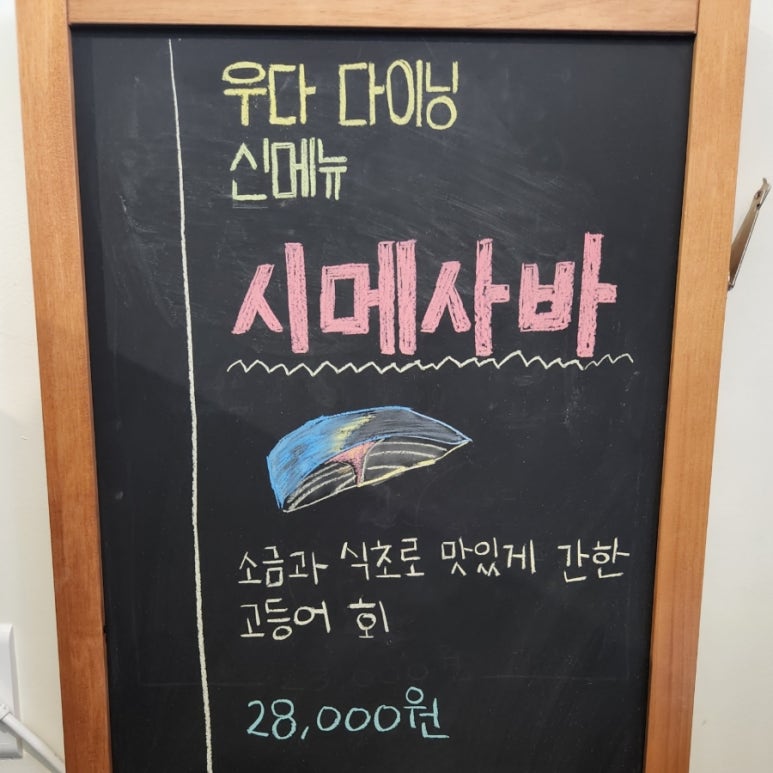 우다 다이닝
신메뉴
시메사바
소금과 식초로 맛있게 간한
고등어 회
28,000원